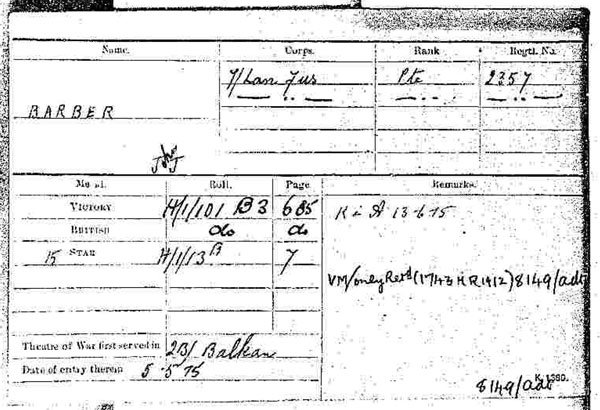 Name. Corps. Rank Regtl. No.
7/Lan Fus Pte 2357
— .. — — .. — — .. —
BARBER
John J
Medal. Roll. Page Remarks.
VICTORY H/1/101 B3 685 K in A 13-6-15
BRITISH do do
15 STAR H/1/13B 7
VM/only Retd (1743 KR1912) 8149/adt
Theatre of War first served in 2B/ Balkan
Date of entry therein 5-5-15
K. 1380.
8149/adt